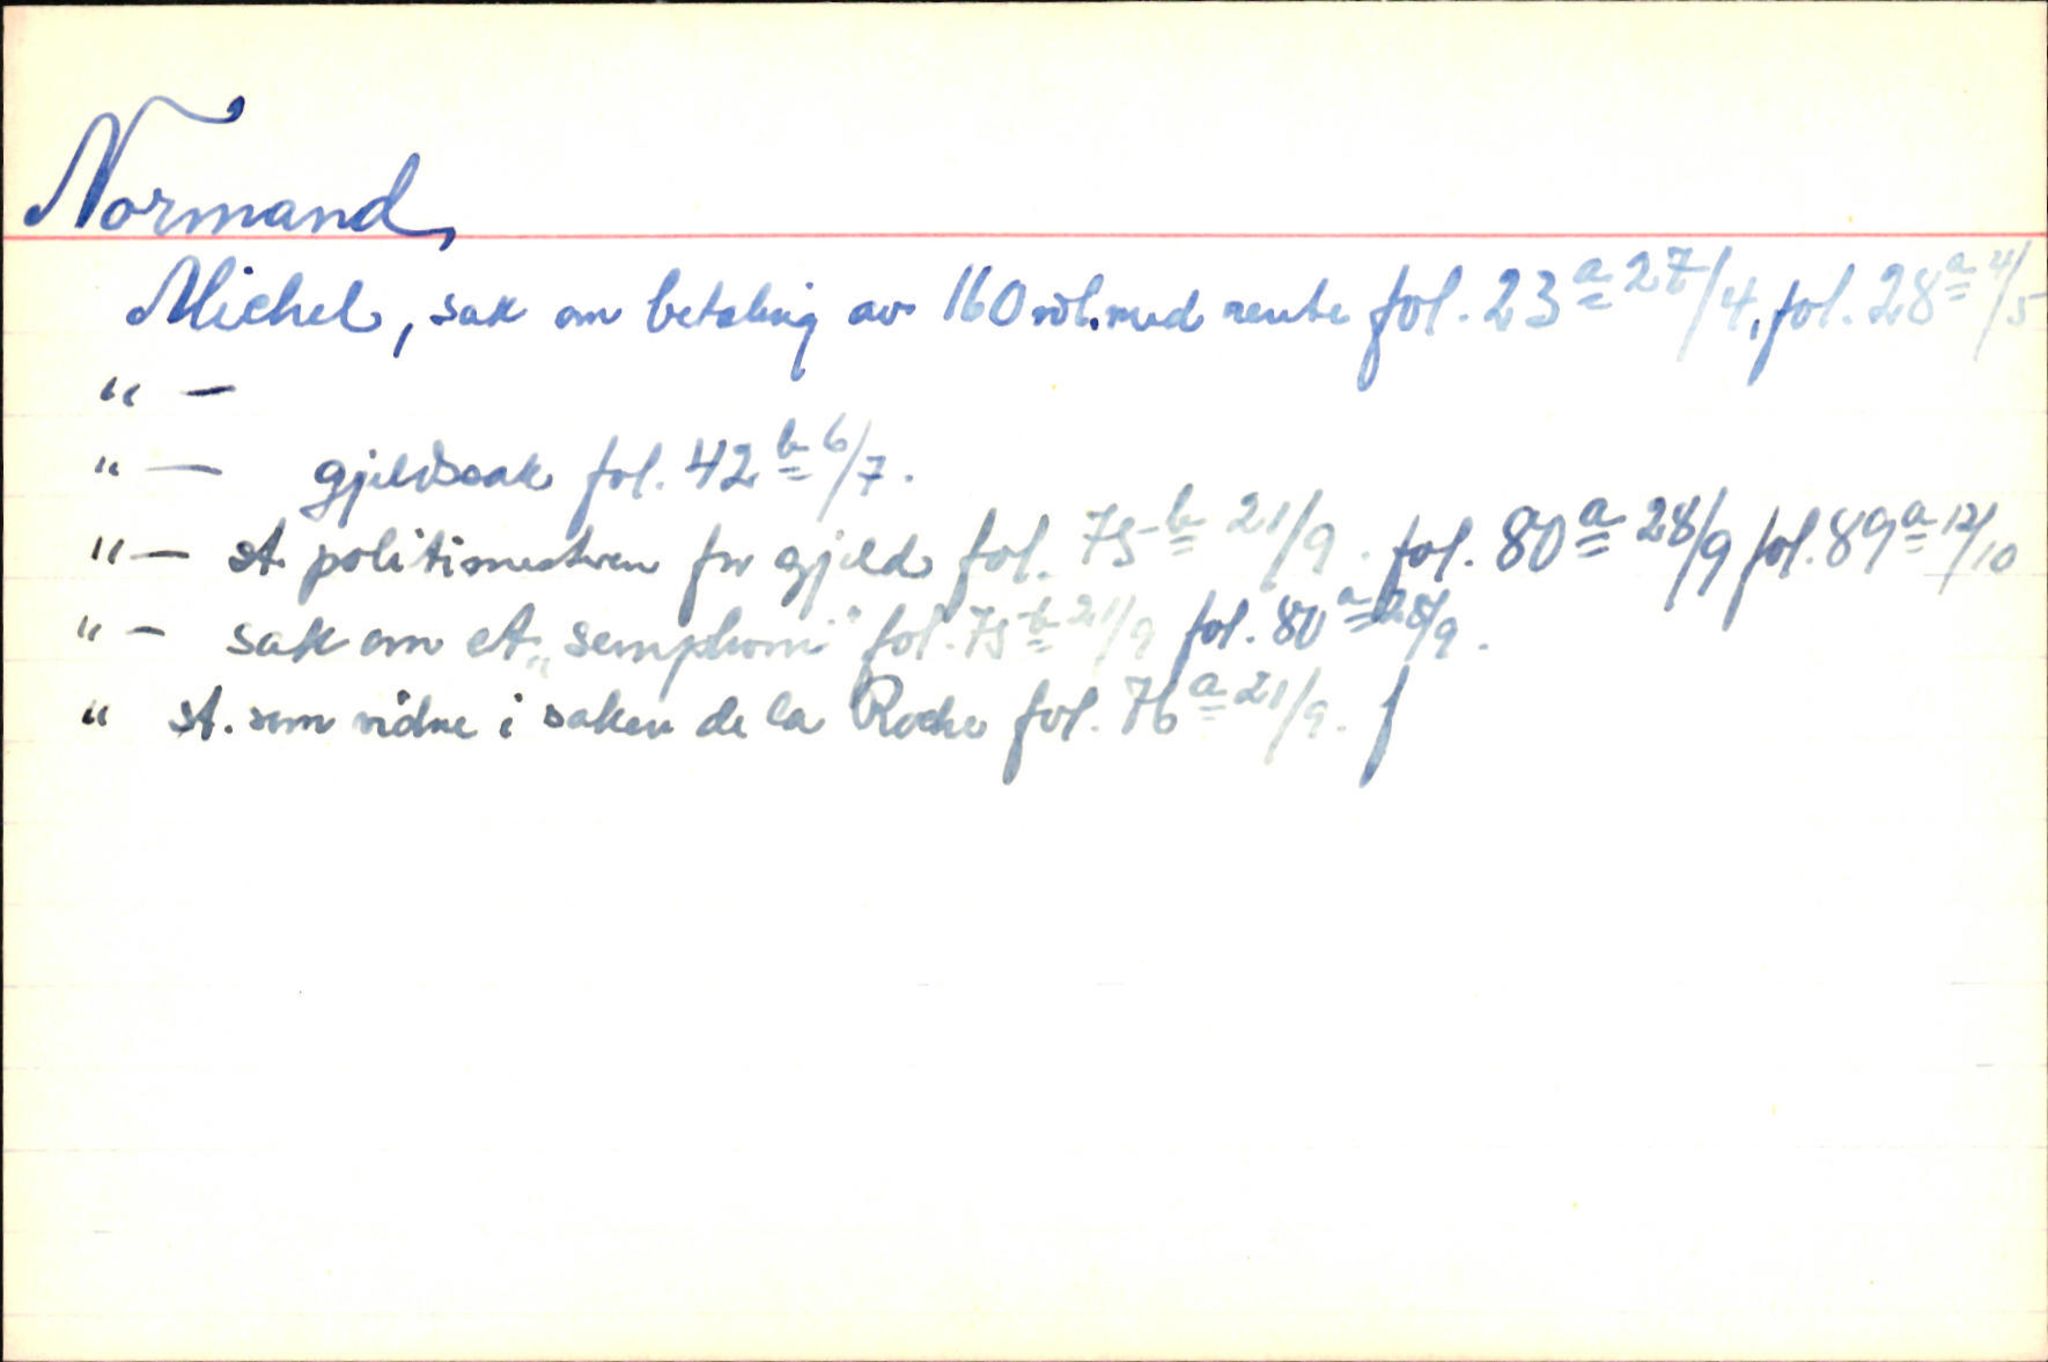 Normand,
Michel, sak om betaling av 160 rdl. med rente fol. 23a 27/4, fol. 28a 4/5
" —
" — gjeldssak fol. 42b 6/7.
" — st. politimesteren for gjeld fol. 75b 21/9. fol. 80a 28/9 fol. 89a 12/10
" — sak om et „semphoni" fol. 75b 21/9 fol. 80a 28/9.
" st. som vidne i saken de la Roche fol. 76a 21/9. f